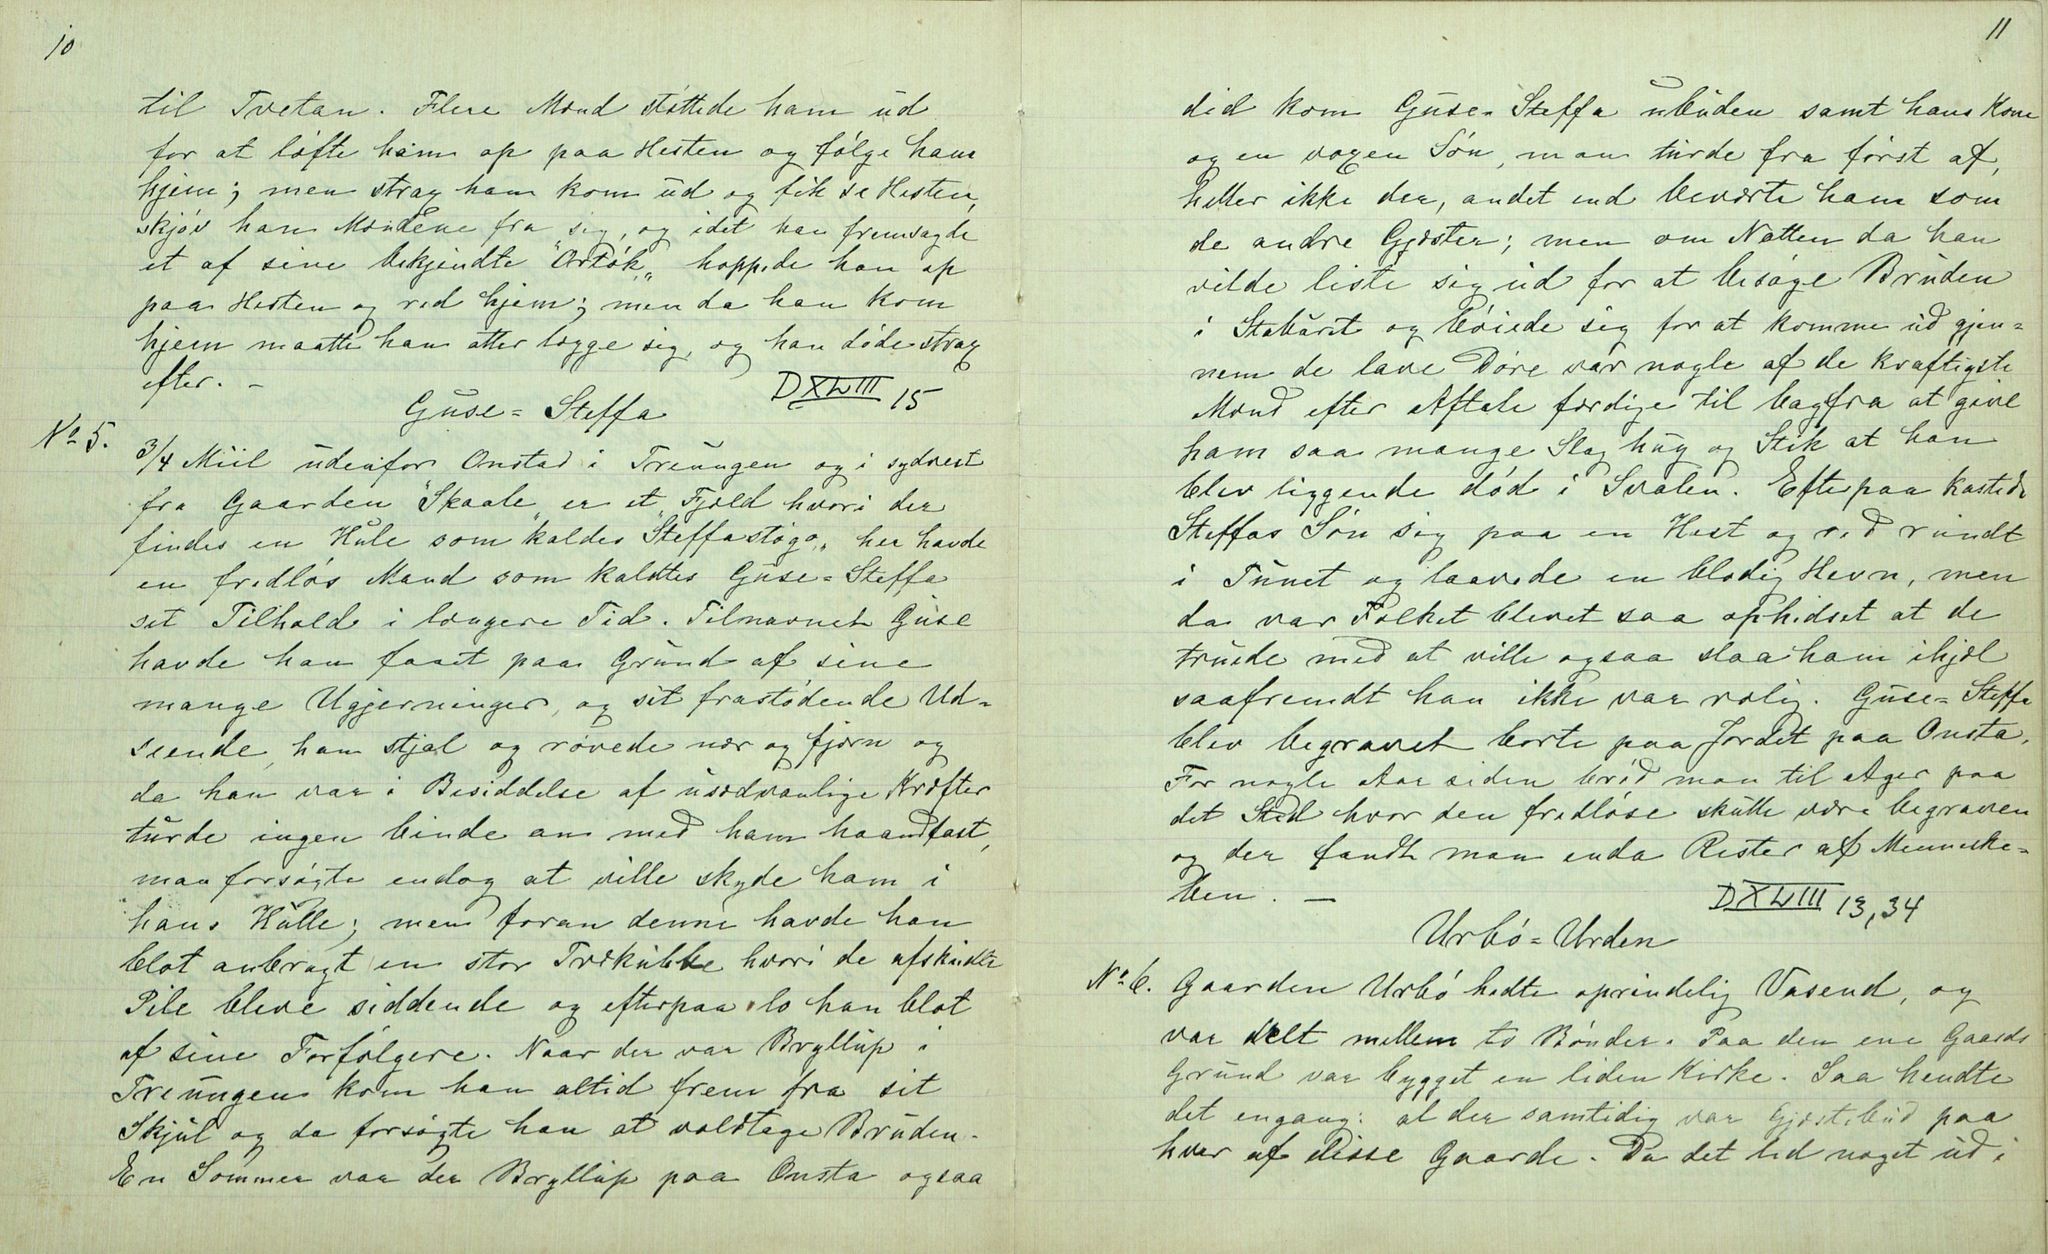 10
til Tvetan. Flere Mænd støttede ham ud
for at løfte ham op paa Hesten og følge ham
hjem; men strax han kom ud og fik se Hesten,
skjøv han Mændene fra sig, og idet han fremsagde
et af sine bekjendte "Ortøk„ hoppede han op
paa Hesten og red hjem; men da han kom
hjem maatte han atter lægge sig, og han døde strax
efter. –
DXLIII 15
Guse = Steffa
No 5.
3/4 Miil udenfor Onstad i Treungen og i sydvest
fra Gaarden "Skaale„ er et Fjeld hvori der
findes en Hule som kaldes "Steffastogo„ her havde
en fredløs Mand som kaldtes Guse=Steffa
sit Tilhold i længere Tid. Tilnavnet Guse
havde han faaet paa Grund af sine
mange Ugjerninger, og sit frastødende Ud=
seende, han stjal og røvede nær og fjærn og
da han var i Besiddelse af usædvanlige Kræfter
turde ingen binde an med ham haandfast,
man forsøgte endog at ville skyde ham i
hans Hulle; men foran denne havde han
blot anbragt en stor Trækubbe hvori de afskudte
Pile bleve siddende og efterpaa lo han blot
af sine Forfølgere. Naar der var Bryllup i
Treungen kom han altid frem fra sit
Skjul og da forsøgte han at voldtage Bruden.
En Sommer var der Bryllup paa Onsta ogsaa
11
did kom Guse=Steffa ubuden samt hans Kone
og en voxen Søn, man turde fra først af,
heller ikke der, andet end beværte ham som
de andre Gjæster; men om Natten da han
vilde liste sig ud for at besøge Bruden
i Staburet og bøiede sig for at komme ud gjen=
nem de lave Døre var nogle af de kraftigste
Mænd efter Aftale færdige til bagfra at give
ham saa mange Slag hug og Stik at han
blev liggende død i Svalen. Efterpaa kastede
Steffas Søn sig paa en Hest og red rundt
i Tunet og laavede en blodig Hevn, men
da var Folket blevet saa ophidset at de
truede med at ville ogsaa slaa ham ihjæl
saafremdt han ikke var rolig. Guse=Steffa
blev begravet borte paa Jordet paa Onsta,
For nogle Aar siden brød man til Ager paa
det Sted hvor den fredløse skulle være begraven
og der fandt man enda Rester af Menneske=
ben. –
DXLIII 13,34
Urbø=Urden
No 6. Gaarden Urbø hedte oprindelig Vasend, og
var delt mellem to Bønder. Paa den ene Gaards
Grund var bygget en liden Kirke. Saa hendte
det engang: at der samtidig var Gjæstebud paa
hver af disse Gaarde. Da det led noget ud i